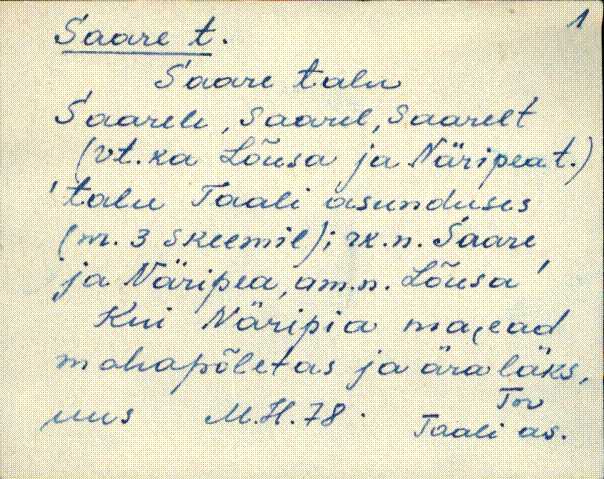 1
Saare t.
Saare talu
Saarele, Saarel, Saarelt
(vt. ka Lõusa ja Näripea t.)
'talu Taali asunduses
(nr. 3 skeemil); rk.n. Saare
ja Näripea, am.n. Lõusa'
Kui Näripia majead
mahapõletas ja ära läks,
uus M.H. 78.
Tor
Taali as.